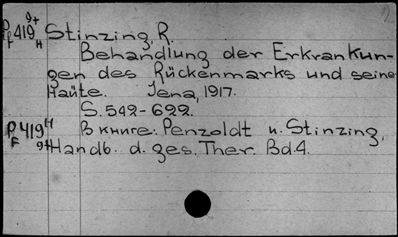 Р 419 9+ Stinzing, R.
F н Behandlung der Erkrankun-
gen des Rückenmarks und seine
Haüte. Jena, 1917.
S. 542-622.
Р 419 н В книге: Penzoldt и. Stinzing,
F 9+ Handb. d. ges. Ther. Bd. 4.